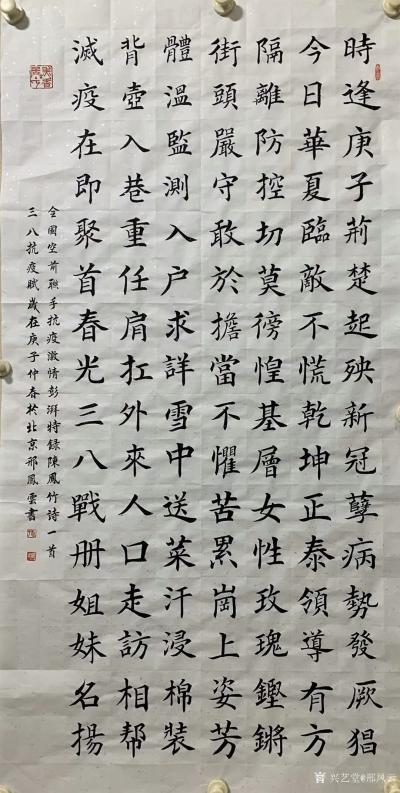 時逢庚子荊楚起殃新冠孽病勢發厥猖
今日華夏臨敵不慌乾坤正泰領導有方
隔離防控切莫徬惶基層女性玫瑰鏗鏘
街頭嚴守敢於擔當不懼苦累崗上姿芳
體溫監測入户求詳雪中送菜汗浸棉裝
背壺入巷重任肩扛外來人口走訪相帮
滅疫在即聚首春光三八戰册姐妹名揚
全國空前聯手抗疫激情彭湃特録陳鳳竹詩一首
三八抗疫賦歲在庚子仲春於北京邢鳳雲書
兴艺堂@邢风云